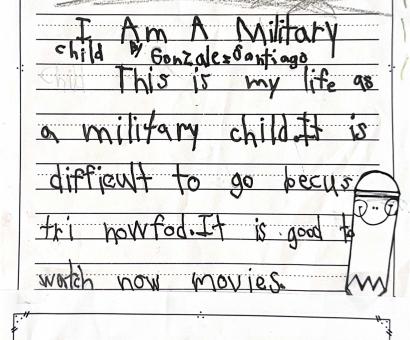 I Am A Military
child By Gonzalez Santiago
Child
This is my life as
a military child.It is
difficult to go becus
tri nowfod.It is good to
watch now movies.